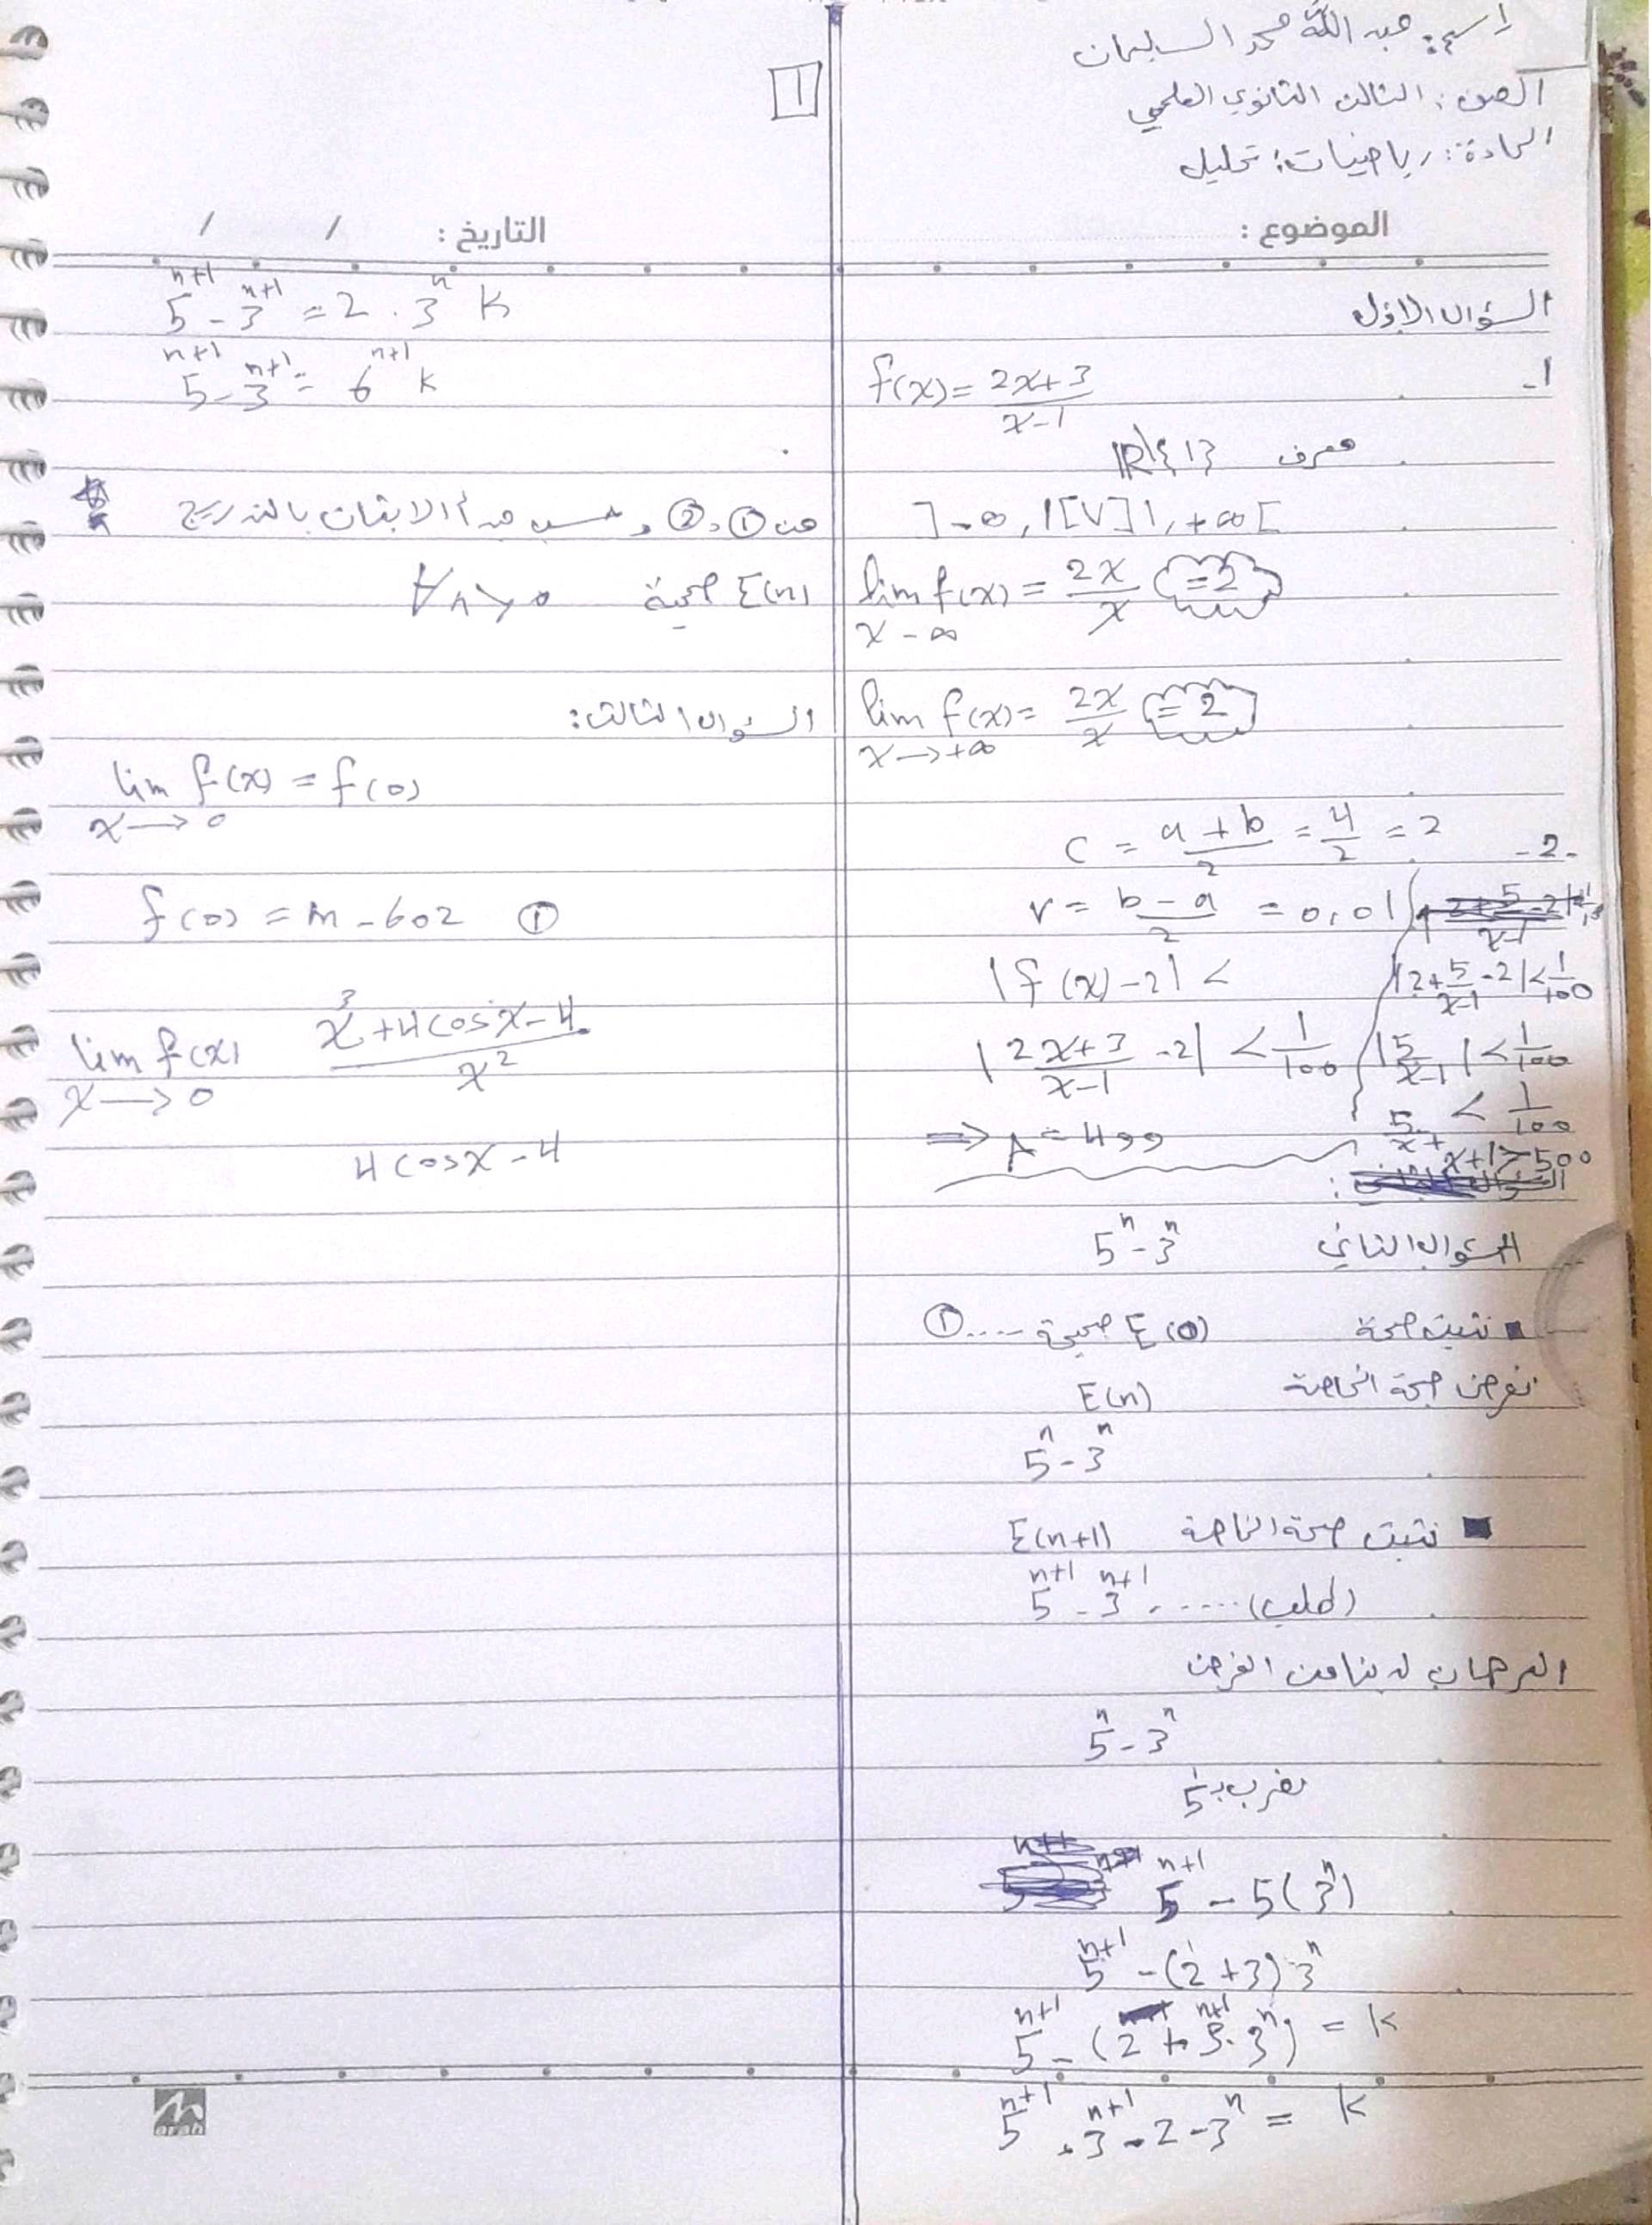 اسم: عبد الله محمد السليمان
الصف: الثالث الثانوي العلمي
المادة: رياضيات: تحليل
1
الموضوع :
السؤال الأول
1-
f(x) = \frac{2x+3}{x-1}
معرف R\{1}
]-∞, 1[ V ]1, +∞[
lim f(x) = \frac{2x}{x} = 2
x - ∞
lim f(x) = \frac{2x}{x} = 2
x → +∞
-2-
c = \frac{a+b}{2} = \frac{4}{2} = 2
r = \frac{b-a}{2} = 0,01
|f(x) - 2| <
|\frac{2x+3}{x-1} - 2| < \frac{1}{100}
⇒ A = 499
|2 + \frac{5}{x-1} - 2| < \frac{1}{100}
|\frac{5}{x-1}| < \frac{1}{100}
\frac{5}{x+} < \frac{1}{100}
x+1 > 500
السؤال الثاني 5^n - 3^n
نثبت صحة E(0) صحيحة .... ①
نفرض صحة الخاصة E(n)
5^n - 3^n
نثبت صحة الخاصة E(n+1)
5^{n+1} - 3^{n+1} ..... (طلب)
البرهان لدينا من الفرض
5^n - 3^n
نضرب بـ 5
5^{n+1} - 5(3^n)
5^{n+1} - (2+3) 3^n
5^{n+1} - (2 + 3^{n+1}. 3^n) = k
5^{n+1} - 3^{n+1} - 2 - 3^n = k
التاريخ : / /
5^{n+1} - 3^{n+1} = 2 . 3^n k
5^{n+1} - 3^{n+1} = 6^{n+1} k
من ① و ② و حسب مبدأ الاثبات بالتدريج
E(n) صحيحة ∀n > 0
السؤال الثالث:
lim f(x) = f(0)
x → 0
f(0) = m - 602 ①
lim f(x) \frac{x^3 + 4cosx - 4}{x^2}
x → 0
4cosx - 4